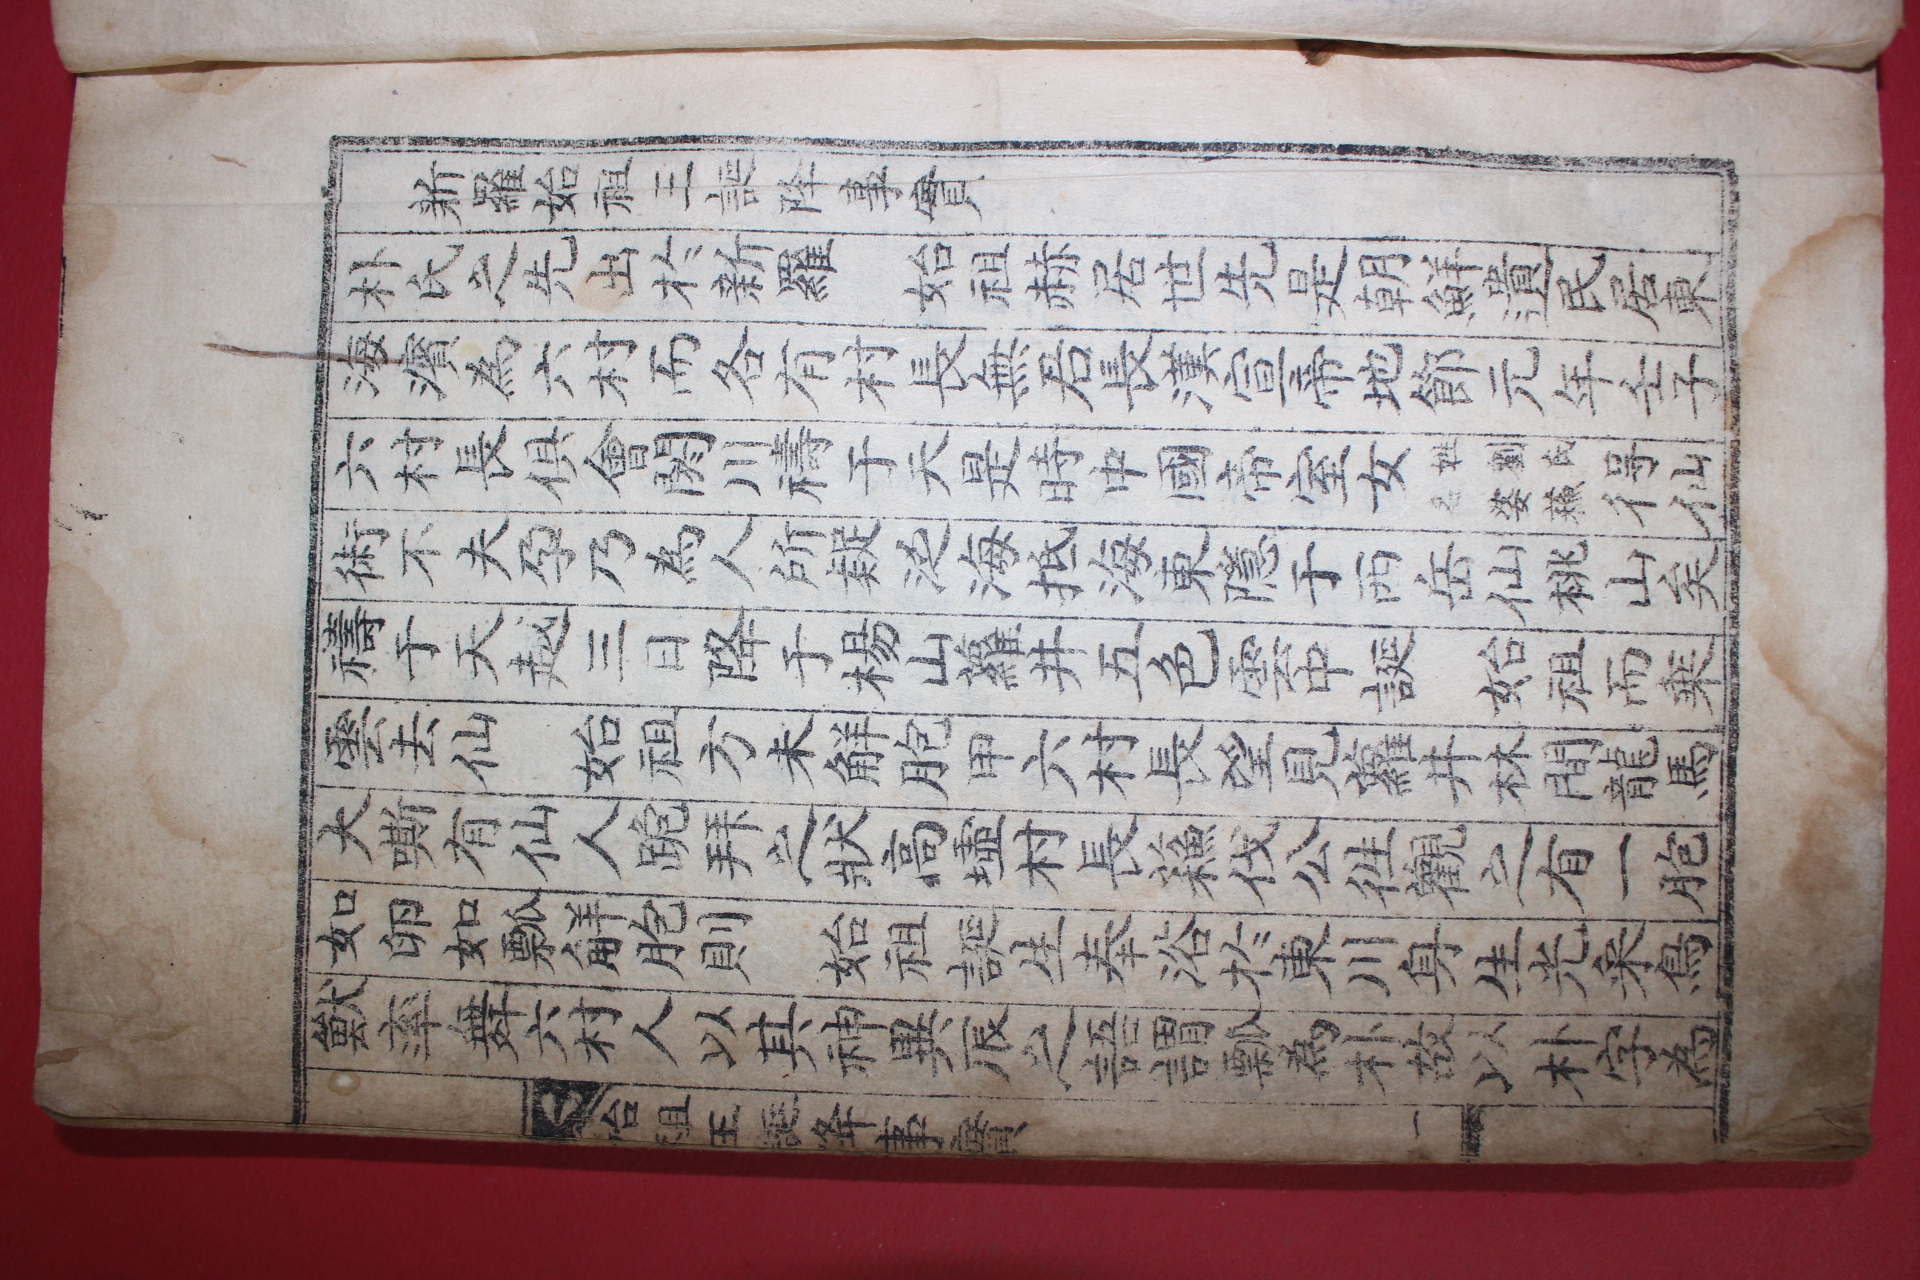 新羅始祖王誕降事實
朴氏之先出於新羅　始祖赫居世先是朝鮮遺民居東
海濱為六村而各有村長無君長漢宣帝地節元年壬子
六村長俱會閼川禱于天是時中國帝室女姓劉氏名婆蘓得仙
術不夫孕乃為人所疑泛海抵海東隱于西岳仙桃山矣
禱于天越三日降于楊山蘿井五色雲中誕　始祖而乘
雲去仙　始祖方未解胞甲六村長望見蘿井林間龍馬
大嘶有仙人跪拜之狀高墟村長蘓伐公徃觀之有一胞
如卵如瓢解胞則　始祖誕生奉浴於東川身生光采鳥
獸率舞六村人以其神異辰之語謂瓢為朴故以朴字為
始祖王誕降事實
一